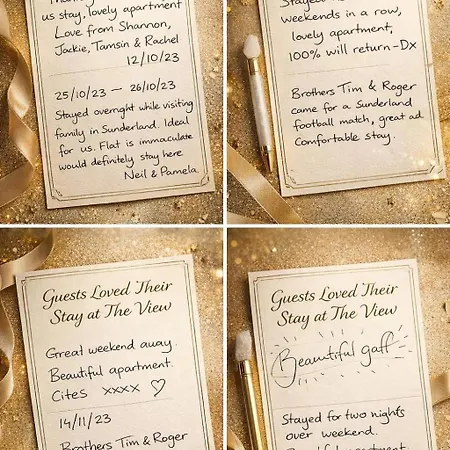 us stay, lovely apartment
Love from Shannon,
Jackie, Tamsin & Rachel
12/10/23
25/10/23 — 26/10/23
Stayed overnght while visiting
family in Sunderland. Ideal
for us. Flat is immaculate
would definitely stay here
Neil & Pamela.
weekends in a row,
lovely apartment,
100% will return -Dx
Brothers Tim & Roger
came for a Sunderland
football match, great ad.
Comfortable stay.
Guests Loved Their
Stay at The View
Great weekend away.
Beautiful apartment.
Cites xxxx ♡
14/11/23
Brothers Tim & Roger
Guests Loved Their
Stay at The View
Beautiful gaff
Stayed for two nights
over weekend.